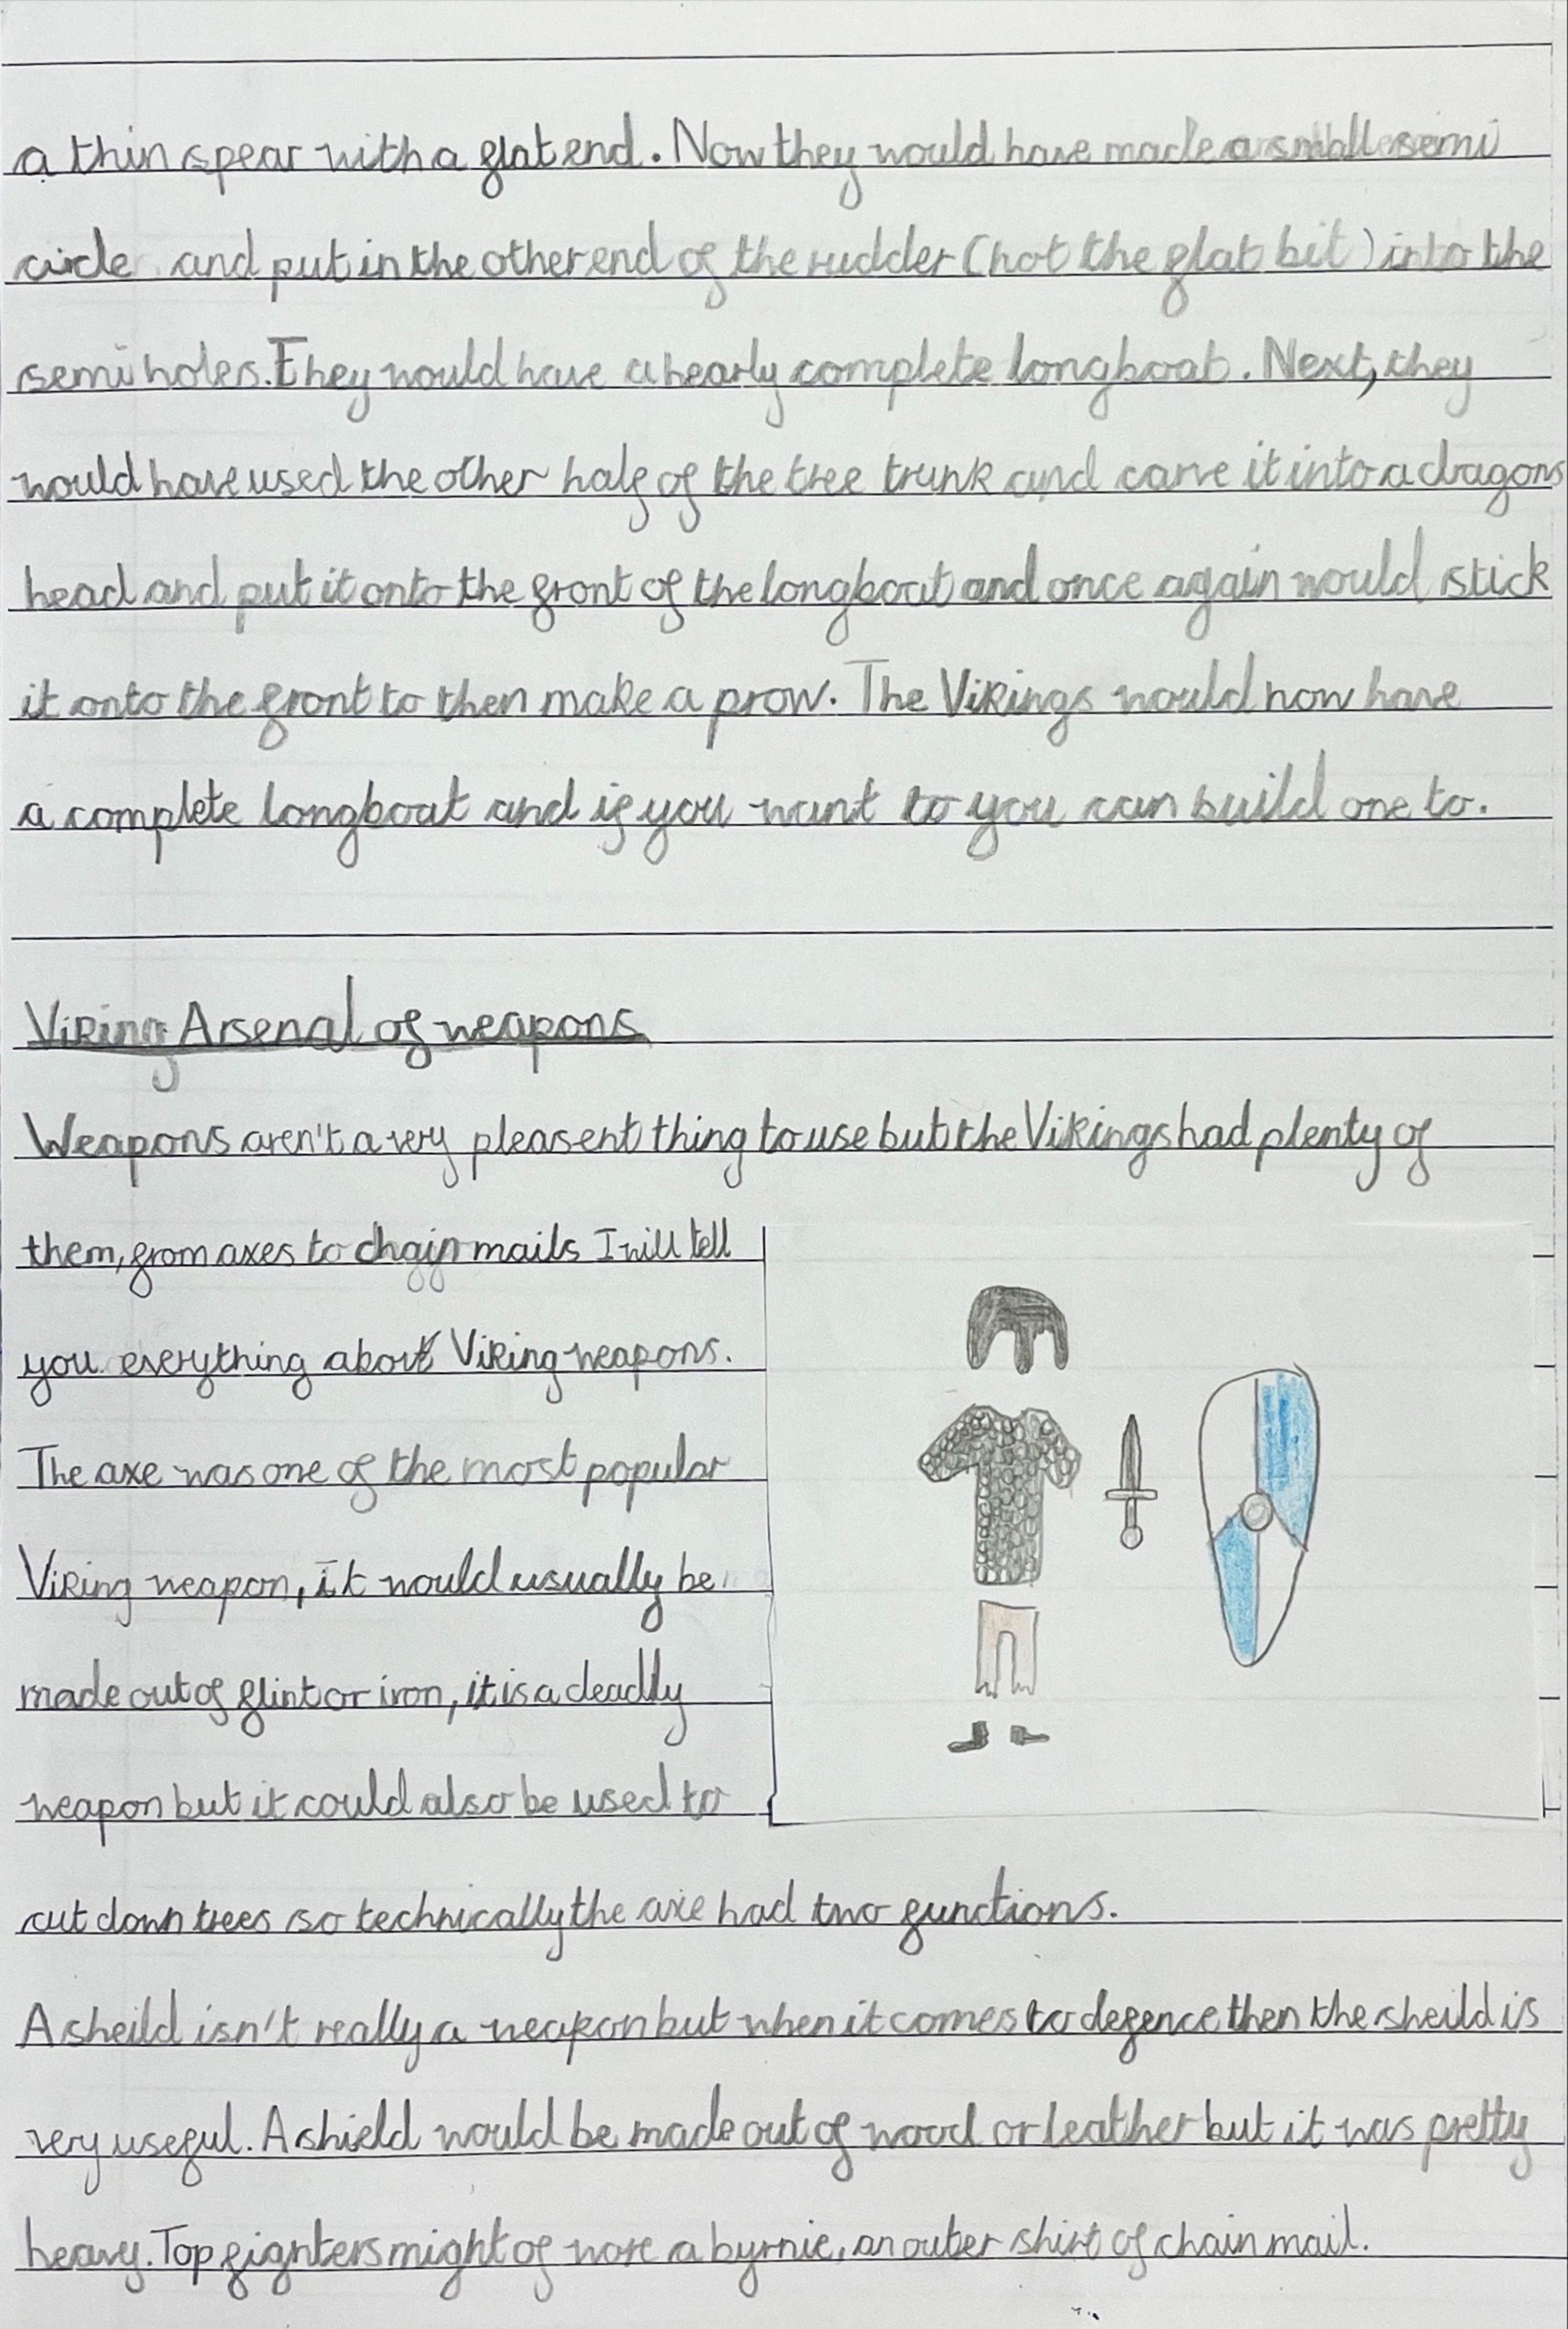 a thin spear with a flat end. Now they would have made a small semi
circle and put in the other end of the rudder (not the flat bit) into the
semi holes. They would have a nearly complete longboat. Next, they
would have used the other half of the tree trunk and carve it into a dragons
head and put it onto the front of the longboat and once again would stick
it onto the front to then make a prow. The Vikings would now have
a complete longboat and if you want to you can build one to.
Viking Arsenal of weapons
Weapons aren't a very pleasent thing to use but the Vikings had plenty of
them, from axes to chain mails I will tell
you everything about Viking weapons.
The axe was one of the most popular
Viking weapon, it would usually be
made out of flint or iron, it is a deadly
weapon but it could also be used to
cut down trees so technically the axe had two functions.
A sheild isn't really a weapon but when it comes to defence then the sheild is
very useful. A shield would be made out of wood or leather but it was pretty
heavy. Top fighters might of wore a byrnie, an outer shirt of chain mail.